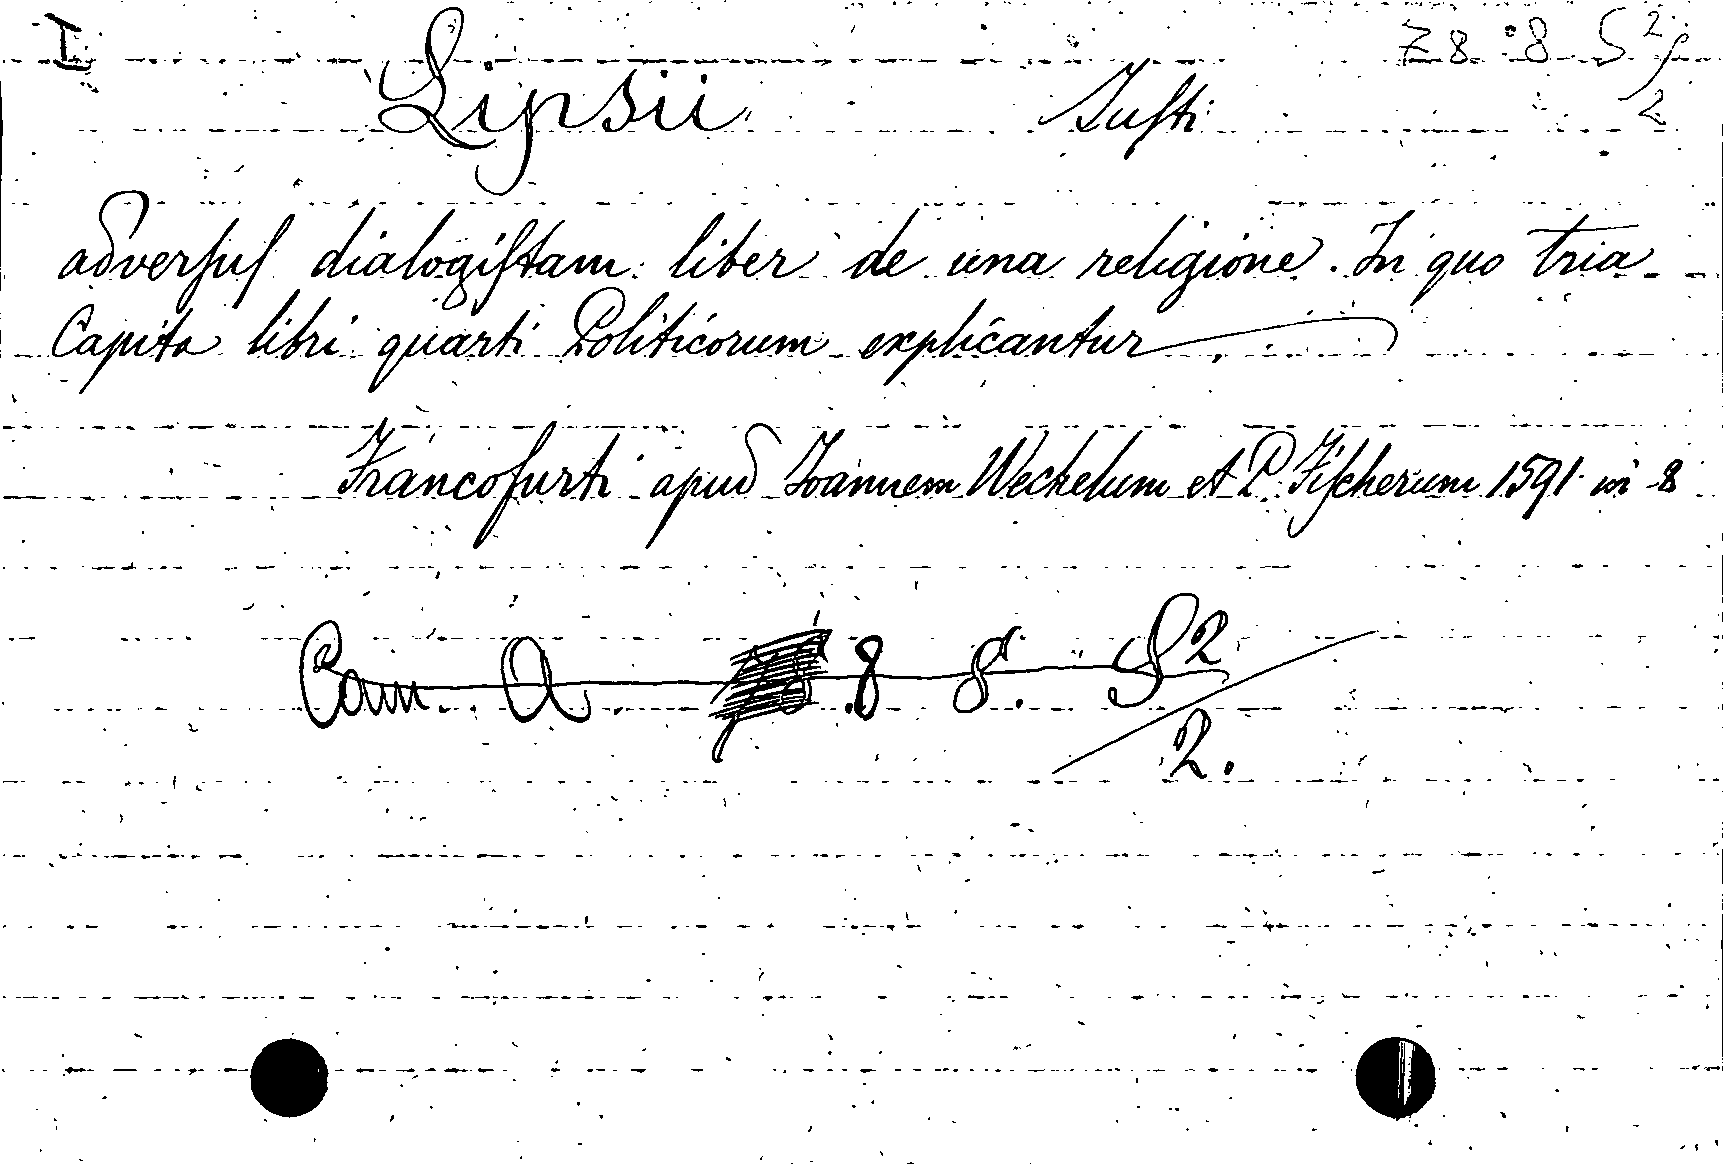 I
Z 8 : 8 S 2/2
Lipsii Iusti
adversus dialogistam liber de una religione. In quo tria
Capita libri quarti Politicorum explicantur
Francofurti apud Ioannem Wechelum et P. Fischerum 1591 in 8
Cam. A 8 8. S 2/2.